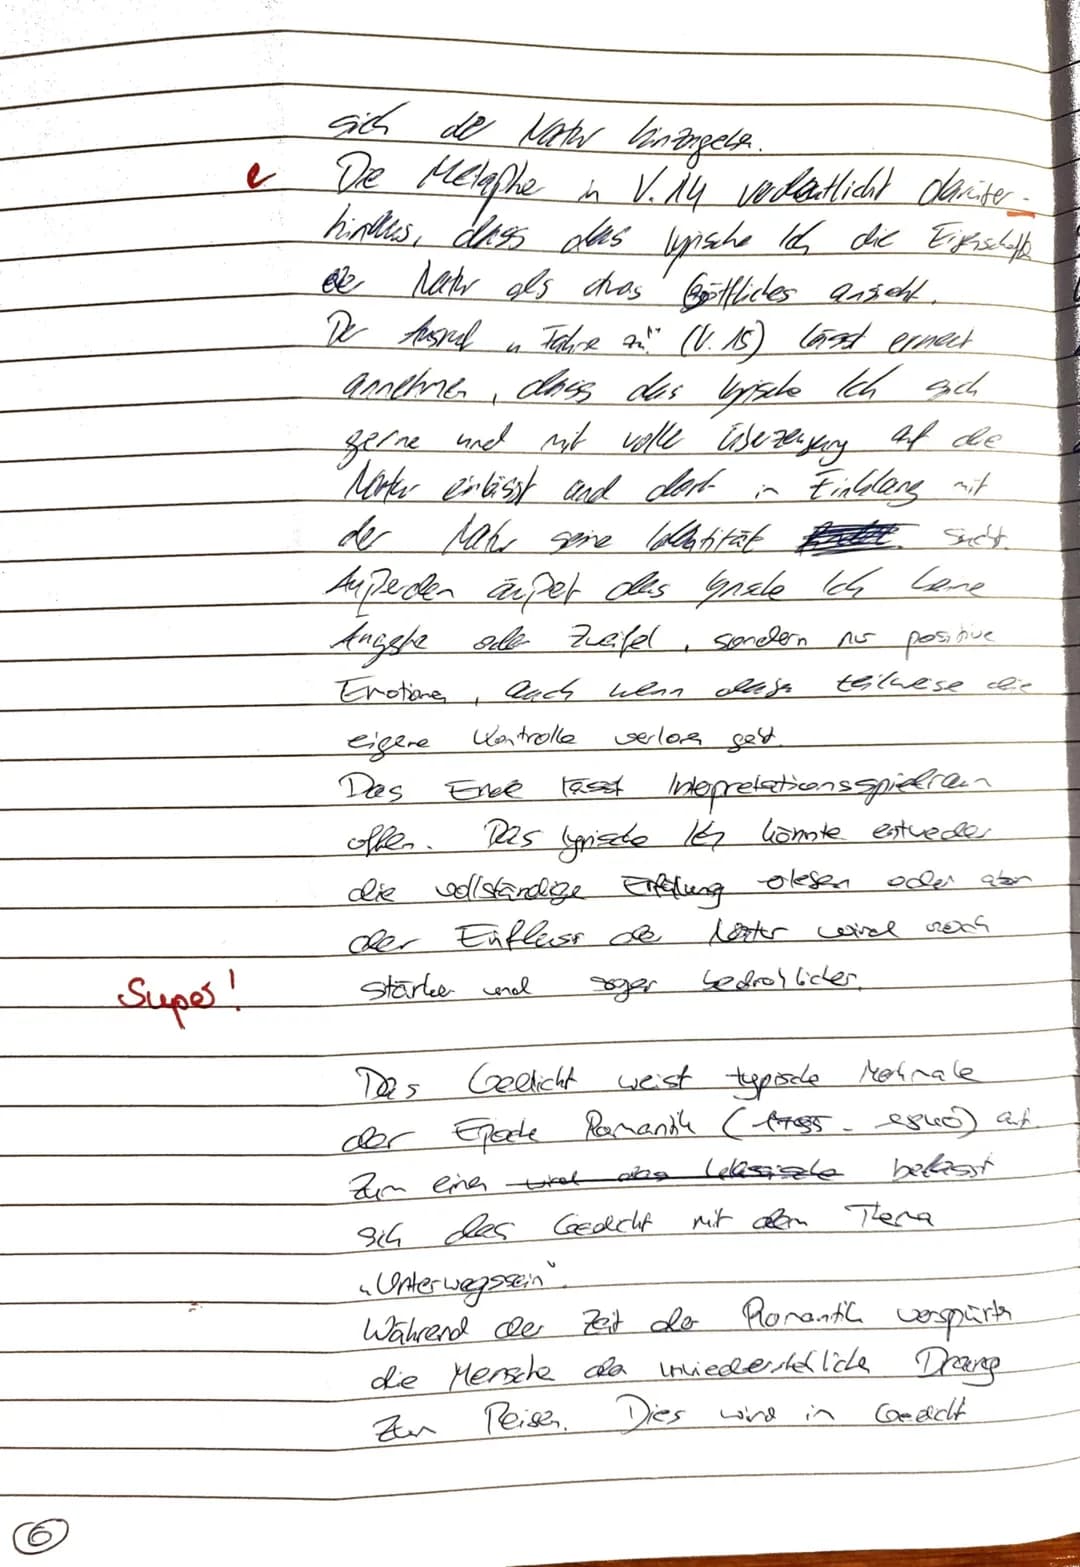 sich der Natur hinzugeben.
Die Metapher in V. 14 verdeutlicht darüber-
hinaus, dass das lyrische Ich die Eigenschaften
der Natur als etwas Göttliches ansieht.
Der Ausruf „Fahre zu!" (V. 15) lässt erneut
annehmen, dass das lyrische Ich sich
gerne und mit voller Überzeugung auf die
Natur einlässt und dort in Einklang mit
der Natur seine Identität sucht.
Außerdem äußert das lyrische Ich keine
Ängste oder Zweifel, sondern nur positive
Emotionen, auch wenn dabei teilweise die
eigene Kontrolle verloren geht.
Das Ende lässt Interpretationsspielraum
offen. Das lyrische Ich könnte entweder
die vollständige Erfüllung oder aber
der Einfluss der Natur wird noch
Super!
stärker und sogar bedrohlicher.
Das Gedicht weist typische Merkmale
der Epoche Romantik (1795 - 1840) auf.
Zum einen befasst
sich das Gedicht mit dem Thema
„Unterwegssein".
Während der Zeit der Romantik verspürten
die Menschen den unwiederstehlichen Drang
zum Reisen. Dies wird in Gedicht
6